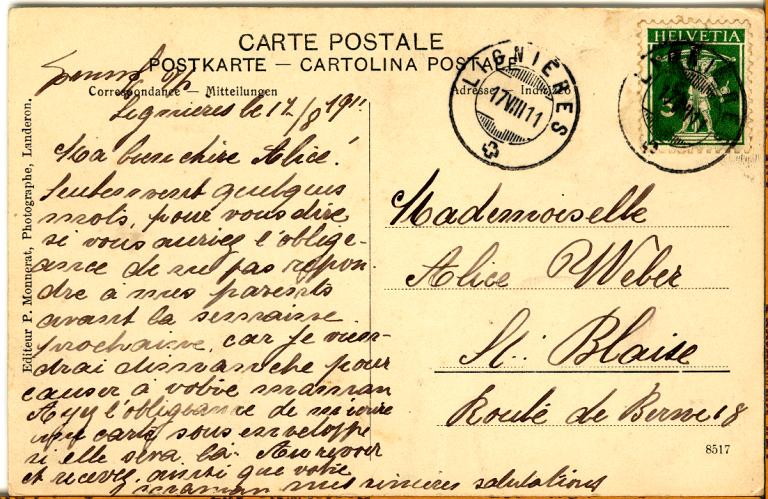 CARTE POSTALE
POSTKARTE — CARTOLINA POSTALE
Correspondance — Mitteilungen
Adresse
LIGNIÈRES
17VIII11
HELVETIA
Lignieres le 17/8 1911
Ma bien chire Alice!
Seulement quelques
mots, pour vous dire
si vous auriez l'oblige-
ance de ne pas repon-
dre à mes parents
avant la semaine
prochaine, car je vien-
drai dimanche pour
causer à votre maman
Ayy l'obligeance de m'ecrire
une carte sous enveloppe
si elle sera là. Au revoir
et recevez, ainsi que votre
maman mes sinières salutations
Mademoiselle
Alice Weber
St. Blaise
Route de Berne 18
8517
Editeur P. Monnerat, Photographe, Landeron.